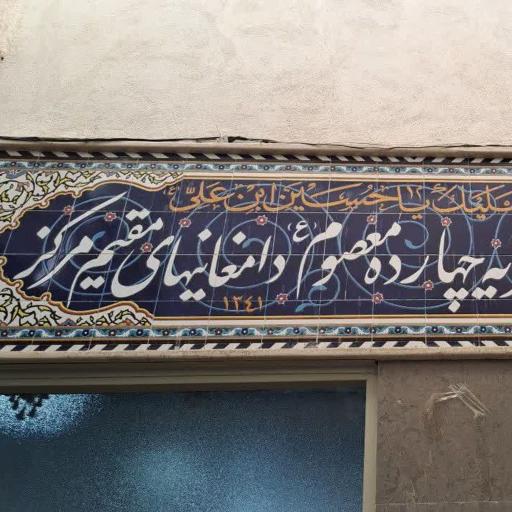 علیک یا حسین ابن علی (ع)
یه چهارده معصوم (ع) دامغانیهای مقیم مرکز
۱۳۴۱